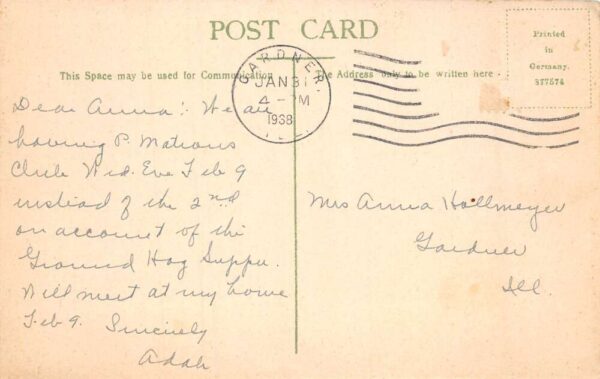 POST CARD
This Space may be used for Communication
The Address only to be written here -
Printed
in
Germany.
377574
GARDNER,
JAN 31
4 - PM
1938
ILL.
Dear Anna: We are
having P. Matrons
Club Wed. Eve Feb 9
instead of the 2nd
on account of the
Ground Hog Supper.
Will meet at my home
Feb 9. Sincerely
Adah
Mrs Anna Hollmeyer
Gardner
Ill.